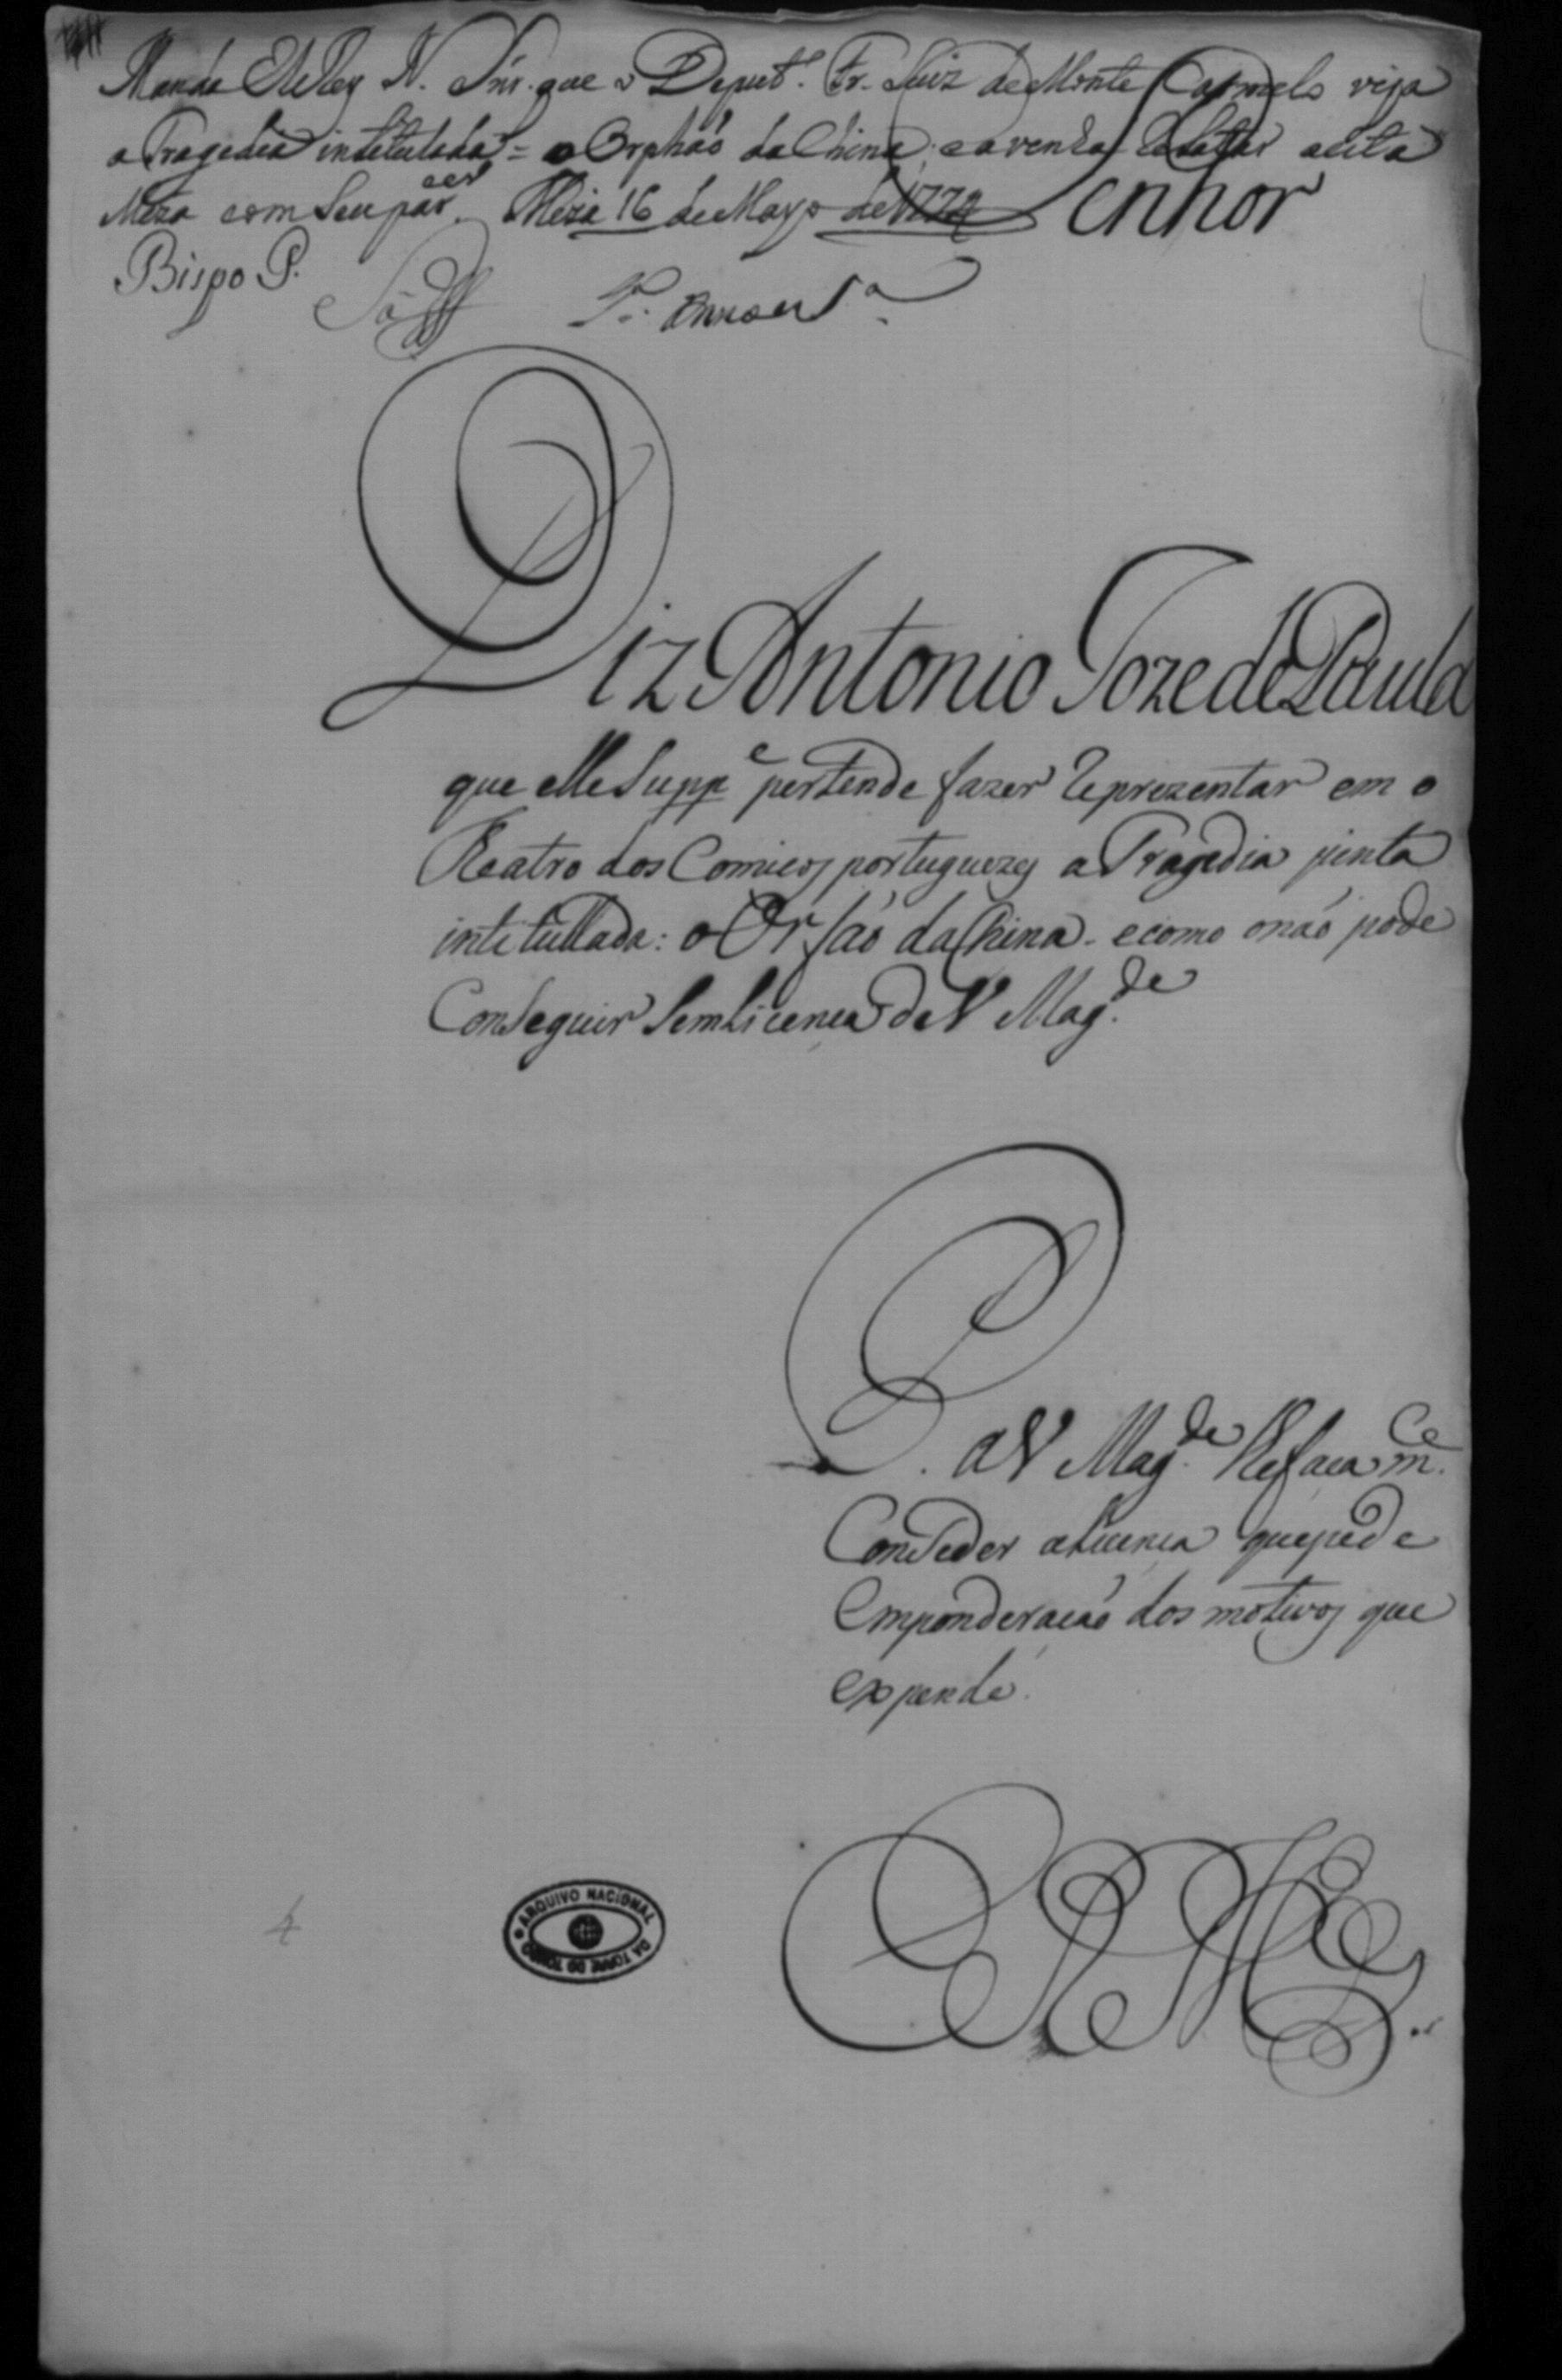 Manda ElRey N. Snr. que o Deput.º Fr. Luiz de Monte Carmelo veja
a Tragedia intitulada = o Orphaõ da China; e a venha relatar a dita
Meza com seu par.ecer Meza 16 de Mayo de 1774
Senhor
Bispo P.
Diz Antonio Joze de Paula
que elle Supp.e pertende fazer Reprezentar em o
Teatro dos Comicos portuguezes a Tragedia junta
intitullada: o Orfaõ da China. e como o naõ pode
Conseguir sem Licença de V Mag.de
P. a V Mag.de lhe faça m.ce
Conseder a Licença que pede
Em ponderaçaõ dos motivos que
expende.
ERMce
ARQUIVO NACIONAL
DA TORRE DO TOMBO
4